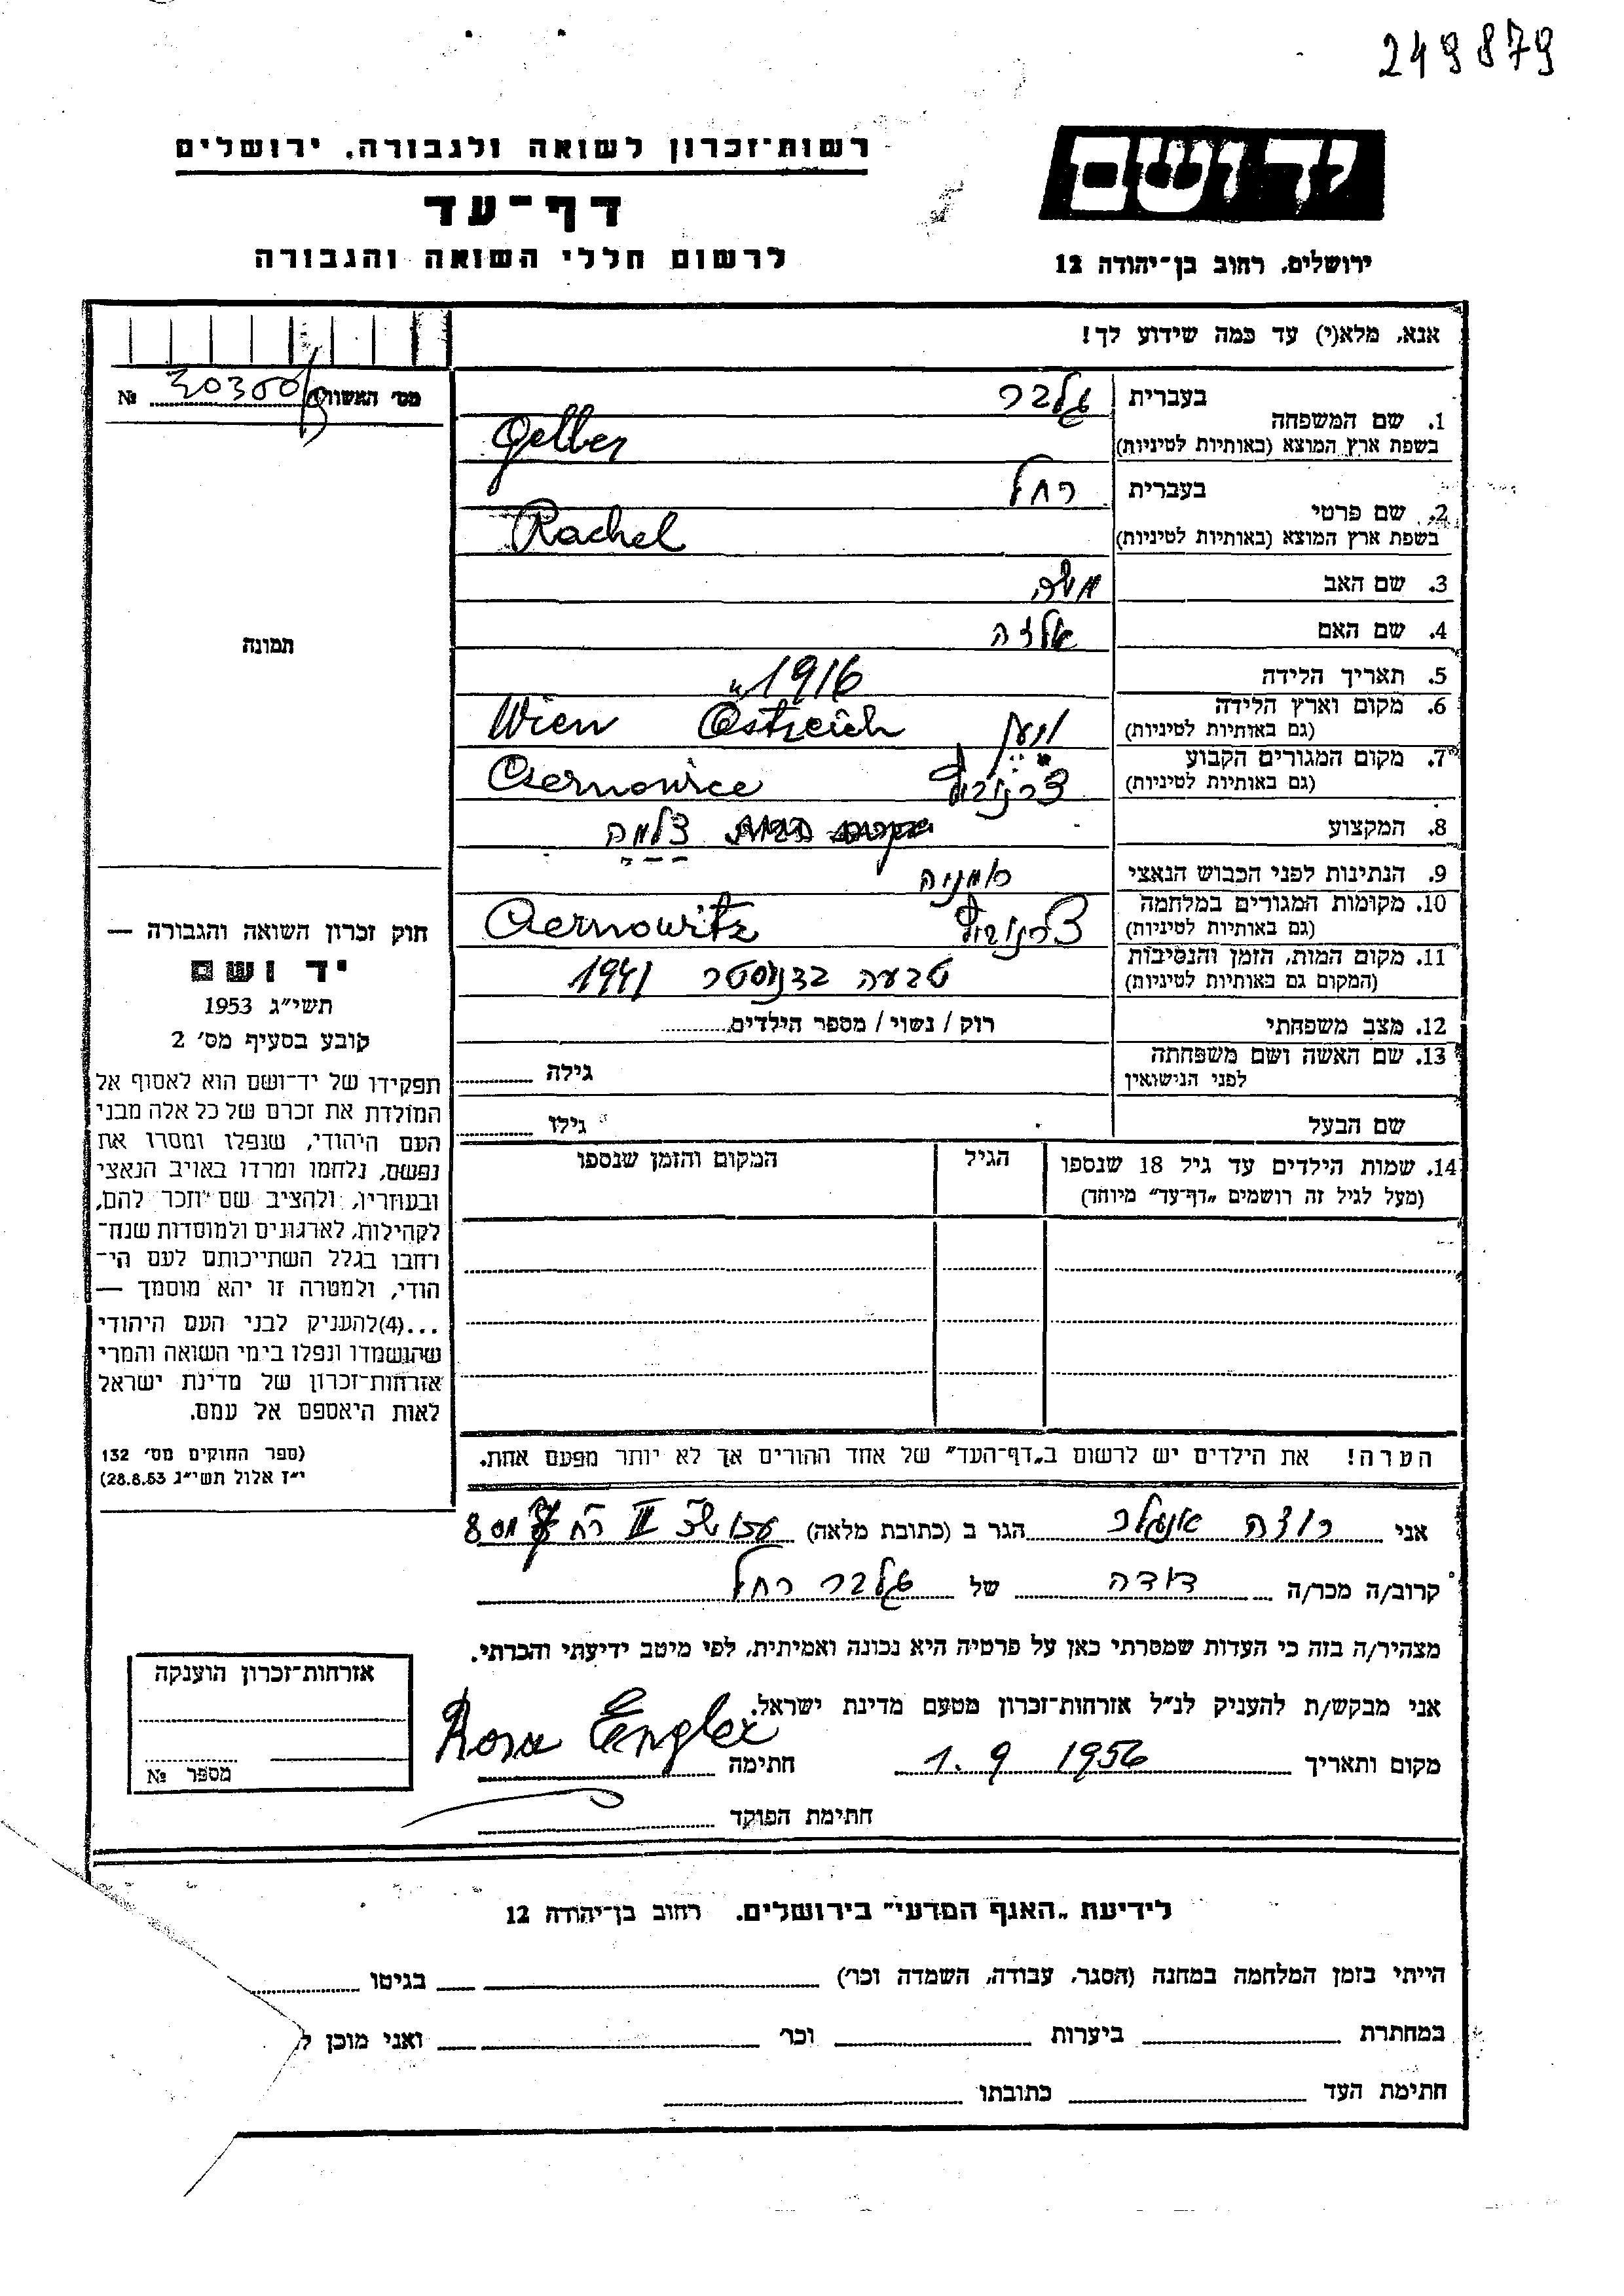 249879
יד ושם
רשות־זכרון לשואה ולגבורה, ירושלים
דף־עד
ירושלים, רחוב בן־יהודה 12
לרשום חללי השואה והגבורה
אנא, מלא(י) עד כמה שידוע לך!
מס׳ האשה № 30300
1. שם המשפחה בעברית גלבר
בשפת ארץ המוצא (באותיות לטיניות) Gelber
2. שם פרטי בעברית רחל
בשפת ארץ המוצא (באותיות לטיניות) Rachel
3. שם האב משה
4. שם האם
5. תאריך הלידה 1916
6. מקום וארץ הלידה (גם באותיות לטיניות) Wien Östreich
7. מקום המגורים הקבוע (גם באותיות לטיניות) צרנוביץ Czernowice
8. המקצוע צלמה
9. הנתינות לפני הכבוש הנאצי רומניה
10. מקומות המגורים במלחמה (גם באותיות לטיניות) צרנוביץ Czernowitz
11. מקום המות, הזמן והנסיבות (המקום גם באותיות לטיניות) טבעה בדניסטר 1941
12. מצב משפחתי רוק / נשוי / מספר הילדים
13. שם האשה ושם משפחתה לפני הנישואין גילה
שם הבעל גילו
14. שמות הילדים עד גיל 18 שנספו הגיל המקום והזמן שנספו
(מעל לגיל זה רושמים „דף־עד״ מיוחד)
הערה! את הילדים יש לרשום ב„דף־העד״ של אחד ההורים אך לא יותר מפעם אחת.
תמונה
חוק זכרון השואה והגבורה —
יד ושם
תשי״ג 1953
קובע בסעיף מס׳ 2
תפקידו של יד־ושם הוא לאסוף אל
המולדת את זכרם של כל אלה מבני
העם היהודי, שנפלו ומסרו את
נפשם, נלחמו ומרדו באויב הנאצי
ובעוזריו, ולהציב שם וזכר להם,
לקהילות, לארגונים ולמוסדות שנח־
רחבו בגלל השתייכותם לעם הי־
הודי, ולמטרה זו יהא מוסמך —
...(4) להעניק לבני העם היהודי
שהושמדו ונפלו בימי השואה והמרי
אזרחות־זכרון של מדינת ישראל
לאות היאספם אל עמם.
(ספר החוקים מס׳ 132
י״ז אלול תשי״ג 28.8.53)
אני רוזה אנגלר הגר ב (כתובת מלאה) III 8
קרוב/ה מכר/ה דודה של גלבר רחל
מצהיר/ה בזה כי העדות שמסרתי כאן על פרטיה היא נכונה ואמיתית, לפי מיטב ידיעתי והכרתי.
אני מבקש/ת להעניק לנ״ל אזרחות־זכרון מטעם מדינת ישראל.
מקום ותאריך 1.9 1956 חתימה Rosa Engler
חתימת הפוקד
אזרחות־זכרון הוענקה
מספר №
לידיעת „האגף המדעי״ בירושלים. רחוב בן־יהודה 12
הייתי בזמן המלחמה במחנה (הסגר, עבודה, השמדה וכר׳) בגיטו
במחתרת ביערות וכר׳ ואני מוכן ל
חתימת העד כתובתו